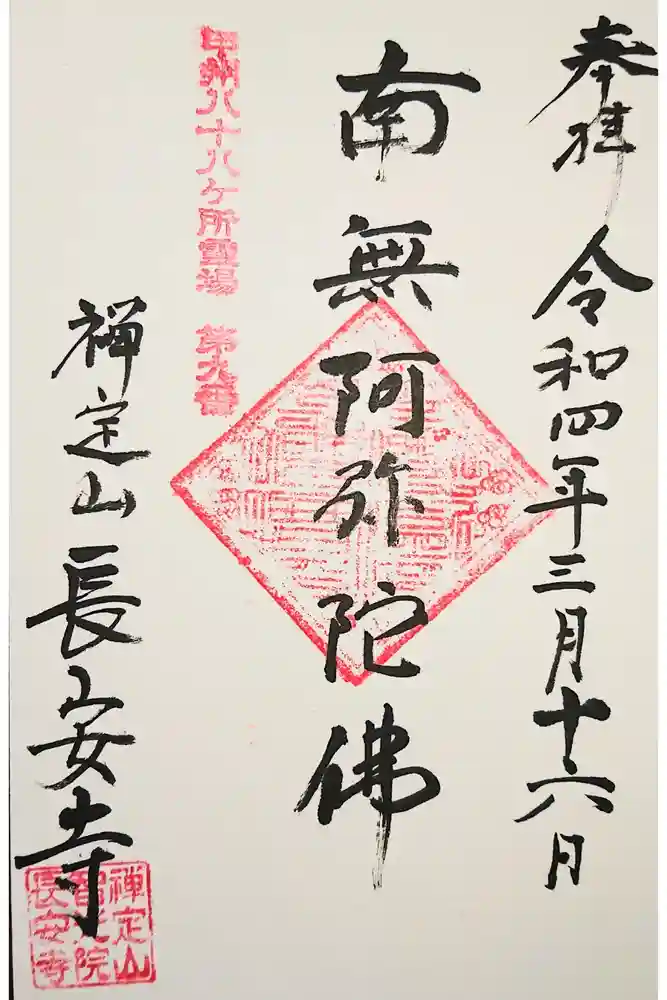 奉拝
令和四年三月十六日
南無阿弥陀佛
甲州八十八ケ所霊場 第九番
禅定山長安寺
禅定山
智光院
長安寺